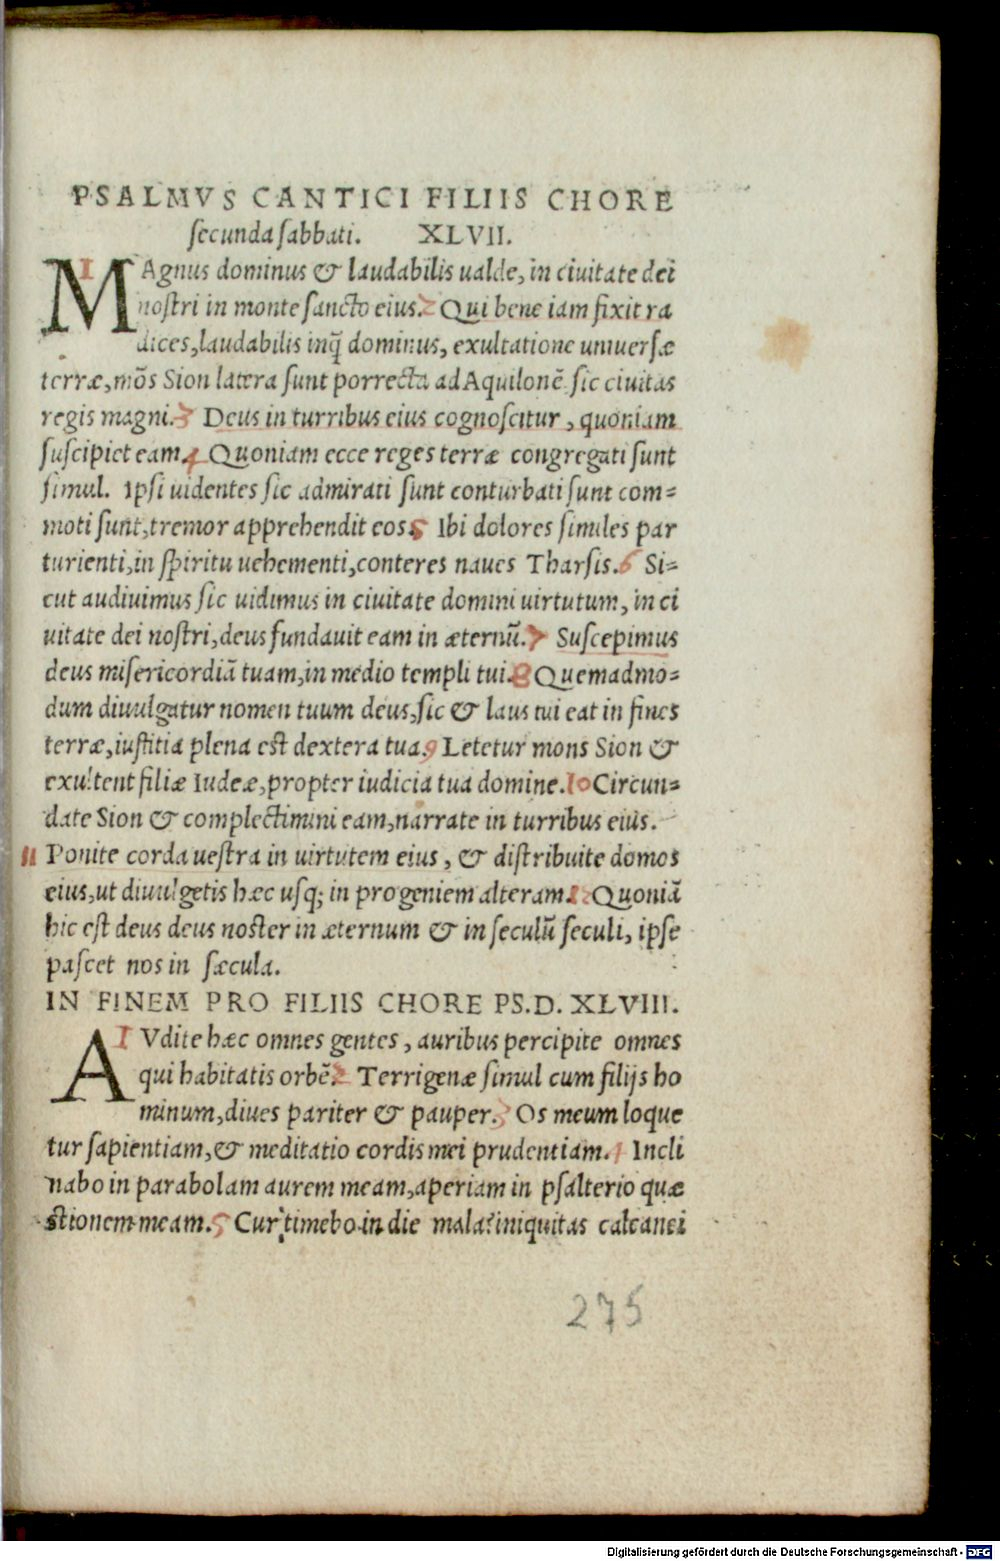 PSALMVS CANTICI FILIIS CHORE
secunda sabbati. XLVII.
1 MAgnus dominus & laudabilis ualde, in ciuitate dei
nostri in monte sancto eius. 2 Qui bene iam fixit ra
dices, laudabilis inq̃ dominus, exultatione uniuersæ
terræ, mõs Sion latera sunt porrecta ad Aquilonẽ sic ciuitas
regis magni. 3 Deus in turribus eius cognoscitur, quoniam
suscipiet eam. 4 Quoniam ecce reges terræ congregati sunt
simul. Ipsi uidentes sic admirati sunt conturbati sunt com=
moti sunt, tremor apprehendit eos. 5 Ibi dolores similes par
turienti, in spiritu uehementi, conteres naues Tharsis. 6 Si=
cut audiuimus sic uidimus in ciuitate domini uirtutum, in ci
uitate dei nostri, deus fundauit eam in æternũ. 7 Suscepimus
deus misericordiã tuam, in medio templi tui. 8 Quemadmo=
dum diuulgatur nomen tuum deus, sic & laus tui eat in fines
terræ, iustitia plena est dextera tua. 9 Letetur mons Sion &
exultent filiæ Iudeæ, propter iudicia tua domine. 10 Circun=
date Sion & complectimini eam, narrate in turribus eius.
11 Ponite corda uestra in uirtutem eius, & distribuite domos
eius, ut diuulgetis hæc usq; in progeniem alteram. 12 Quoniã
hic est deus deus noster in æternum & in seculũ seculi, ipse
pascet nos in sæcula.
IN FINEM PRO FILIIS CHORE PS.D. XLVIII.
1 AVdite hæc omnes gentes, auribus percipite omnes
qui habitatis orbẽ. 2 Terrigenæ simul cum filijs ho
minum, diues pariter & pauper. 3 Os meum loque
tur sapientiam, & meditatio cordis mei prudentiam. 4 Incli
nabo in parabolam aurem meam, aperiam in psalterio quæ
stionem meam. 5 Cur timebo in die mala? iniquitas calcanei
275
Digitalisierung gefördert durch die Deutsche Forschungsgemeinschaft - DFG